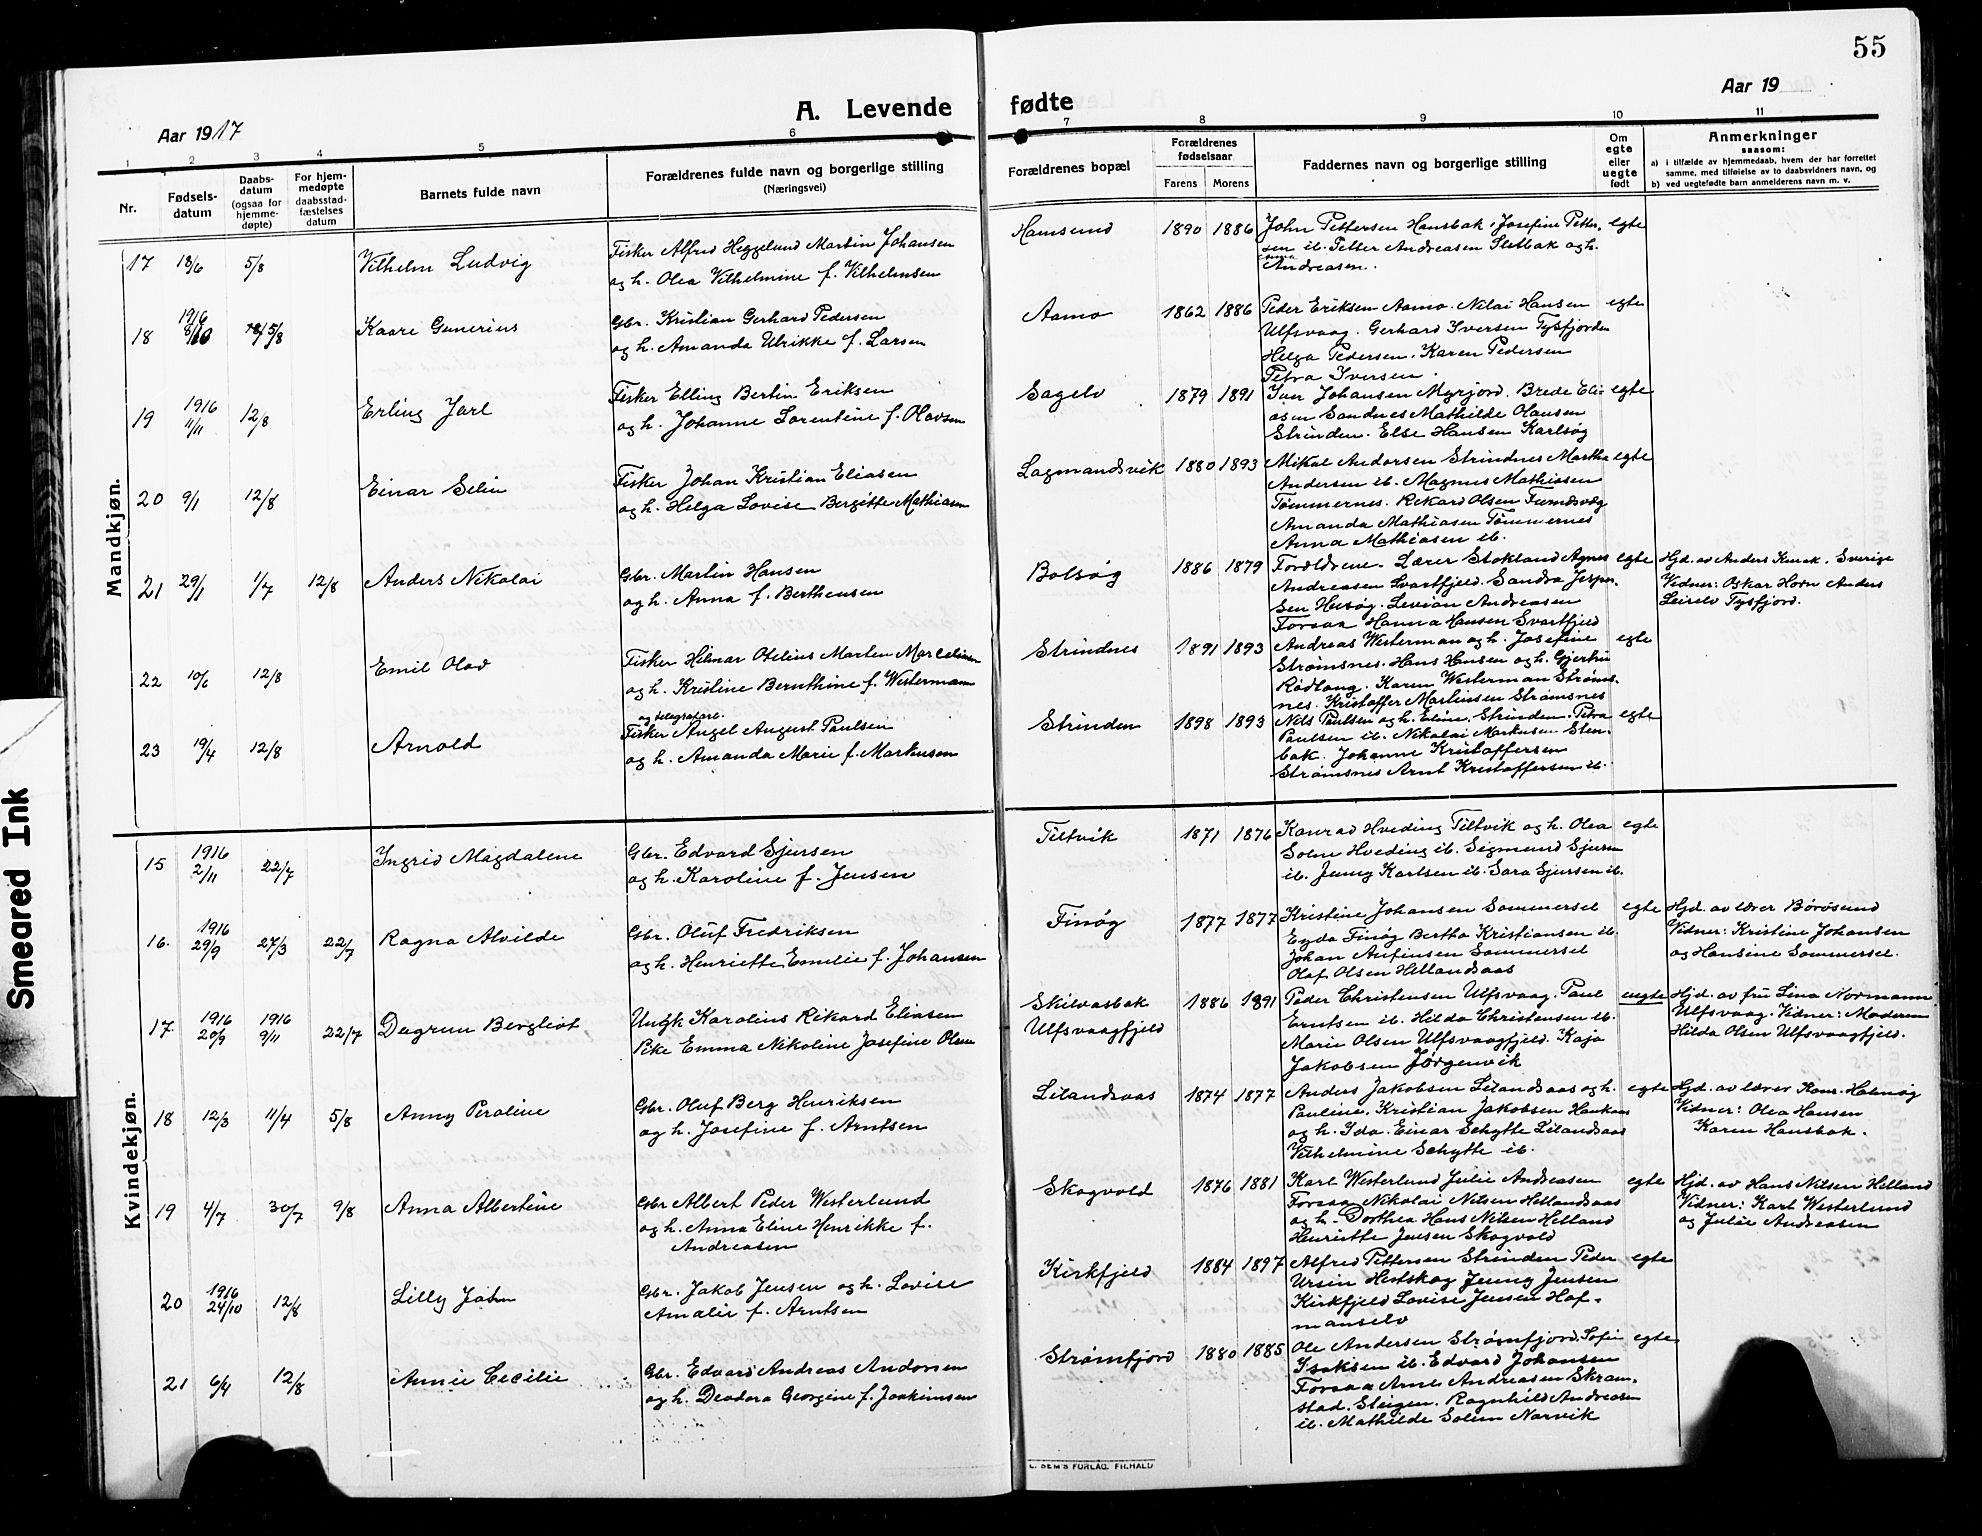 55
Aar 1917
A. Levende fødte
Aar 19
1 2 3 4 5 6 7 8 9 10 11
Nr.
Fødsels-
datum
Daabs-
datum
(ogsaa for
hjemme-
døpte)
For hjem-
medøpte
daabsstad-
fæstelses
datum
Barnets fulde navn
Forældrenes fulde navn og borgerlige stilling
(Næringsvei)
Forældrenes bopæl
Forældrenes
fødselsaar
Farens Morens
Faddernes navn og borgerlige stilling
Om
egte
eller
uegte
født
Anmerkninger
saasom:
a) i tilfælde av hjemmedaab, hvem der har forrettet
samme, med tilføielse av to daabsvidners navn, og
b) ved uegtefødte barn anmelderens navn m. v.
Mandkjøn.
17 18/6 5/8 Vilhelm Ludvig
Fisker Alfred Heggelund Martin Johansen
og h. Olea Vilhelmine f. Vilhelmsen
Hamsund 1890 1886 egte
John Pettersen Hansbak. Josefine Petter-
sen ib. Petter Andreasen Sletbak og h.
Anna
Andreasen.
18 1916 8/10 5/8 Kaare Gunerius
Gbr. Kristian Gerhard Pedersen
og h. Amanda Ulrikke f. Larsen
Aamo 1862 1886 egte
Peder Eriksen Aamo. Nilai Hansen
Ulfsvaag. Gerhard Iversen Tysfjorden
Helga Pedersen. Karen Pedersen
Petra Iversen.
19 1916 11/11 12/8 Erling Jarl
Fisker Elling Bertin Eriksen
og h. Johanne Sorentine f. Olavsen
Sagelv 1879 1891 egte
Iver Johansen Myrjord. Brede Eli-
asen Sandnes Mathilde Olausen
Strinden. Else Hansen Karlsøg
20 9/1 12/8 Einar Selin
Fisker Johan Kristian Eliasen
og h. Helga Lovise Bergitte Mathiasen
Lagmandsvik 1880 1893 egte
Mikal Andorsen Strindnes Martha
Andersen ib. Magnus Mathiasen
Tømmernes. Rikard Olsen
Amanda Mathiasen Tømmernes
Anna Mathiasen ib.
21 29/1 1/7 12/8 Anders Nikolai
Gbr. Martin Hansen
og h. Anna f. Berthensen
Bolsøg 1886 1879 egte
Forældrene. Lærer Stokland Agnes
Andreasen Svartfjeld. Sandra Jesper-
sen Husøg. Levian Andreasen
Forsaa Hanna Hansen Svartfjeld
Hjd. av Anders Kunek. Sverige
Vidner: Oskar Horn Anders
Leirelv Tysfjord.
22 10/6 12/8 Emil Olav
Fisker Hilmar Otelius Marten Marcelinsen
og h. Kristine Bernthine f. Westermann
Strindnes 1891 1893 egte
Andreas Westerman og h. Josefine
Strømsnes. Hans Hansen og h. Gjertru
Rødtang. Karen Westerman Strøms-
nes. Kristoffer Martinsen Strømsnes
23 19/4 12/8 Arnold
og telegrafarb.
Fisker Angel August Paulsen
og h. Amanda Marie f. Markusen
Strinden 1898 1893 egte
Nils Paulsen og h. Eline. Strinden. Petra
Paulsen ib. Nikolai Markusen Sten-
bak. Johanne Kristoffersen
Strømsnes Arnt Kristoffersen ib.
Kvindekjøn.
15 1916 2/11 22/7 Ingrid Magdalene
Gbr. Edvard Sjursen
og h. Karoline f. Jensen
Tiltvik 1871 1876 egte
Konrad Hveding Tiltvik og h. Olea
Solm Hveding ib. Sigmund Sjursen
ib. Jenny Karlsen ib. Sara Sjursen ib.
16. 1916 29/9 27/3 22/7 Ragna Alvilde
Gbr. Oluf Fredriksen
og h. Henriette Emelie f. Johansen
Finøg 1877 1877 egte
Kristine Johansen Sommersel
Egda Finøg Berta Kristiansen ib.
Johan Anfinsen Sommersel
Olaf Olsen Hellandsaas
Hjd. av lærer Børøsund
Vidner: Kristine Johansen
og Hansine Sommersel.
17 1916 20/9 1916 9/11 22/7 Dagrun Bergliot
Ungk Karolius Rikard Eliasen
Pike Emma Nikoline Josefine Olsen
Skilvasbak
Ulfsvaagfjeld 1886 1891 uegte
Peder Christensen Ulfsvaag. Paul
Erntsen ib. Hilda Christensen ib.
Marie Olsen Ulfsvaagfjeld. Kaja
Jakobsen Jørgenvik
Hjd. av fru Lina Normann
Ulfsvaag. Vidner: Moderen
Hilda Olsen Ulfsvaagfjeld.
18 12/3 11/4 5/8 Anny Peroline
Gbr. Oluf Berg Henriksen
og h. Josefine f. Arntsen
Lilandsaas 1874 1877 egte
Anders Jakobsen Lilandsaas og h.
Pauline. Kristian Jakobsen Haukaas
og h. Ida. Einar Schytte Lilandsaas
Vilhelmine Schytte ib.
Hjd. av lærer Konr. Holmøg
Vidner: Olea Hansen
Karen Hansbak.
19 4/7 30/7 9/8 Anna Albertine
Gbr Albert Peder Westerlund
og h. Anna Eline Henrikke f.
Andreasen
Skogvold 1876 1881 egte
Karl Westerlund Julie Andreasen
Forsaa Nikolai Nilsen Hellandsaas
og h. Dorthea Hans Nilsen Helland
Henriette Jensen Skogvold
Hjd. av Hans Nilsen Helland
Vidner: Karl Westerlund
og Julie Andreasen
20 1916 24/10 12/8 Lilly
Gbr. Jakob Jensen og h. Lovise
Amalie f. Arntsen
Kirkfjeld 1884 1897 egte
Alfred Pettersen Strinden Peder
Ursin Hestskog Jenny Jensen
Kirkfjeld Lovise Jensen Hof-
manselv
21 6/4 12/8 Annie Cecilie
Gbr. Edvard Andreas Andorsen
og h. Deodora Georgine f. Joakimsen
Strømfjord 1880 1885 egte
Ole Andersen Strømfjord. Sofie
Isaksen ib. Edvard Johansen
Forsaa Arne Andreasen Skram-
stad. Steigen. Ragnhild Andreasen
ib. Mathilde Solem Narvik
E. SEM'S FORLAG. FR.HALD
Smeared Ink